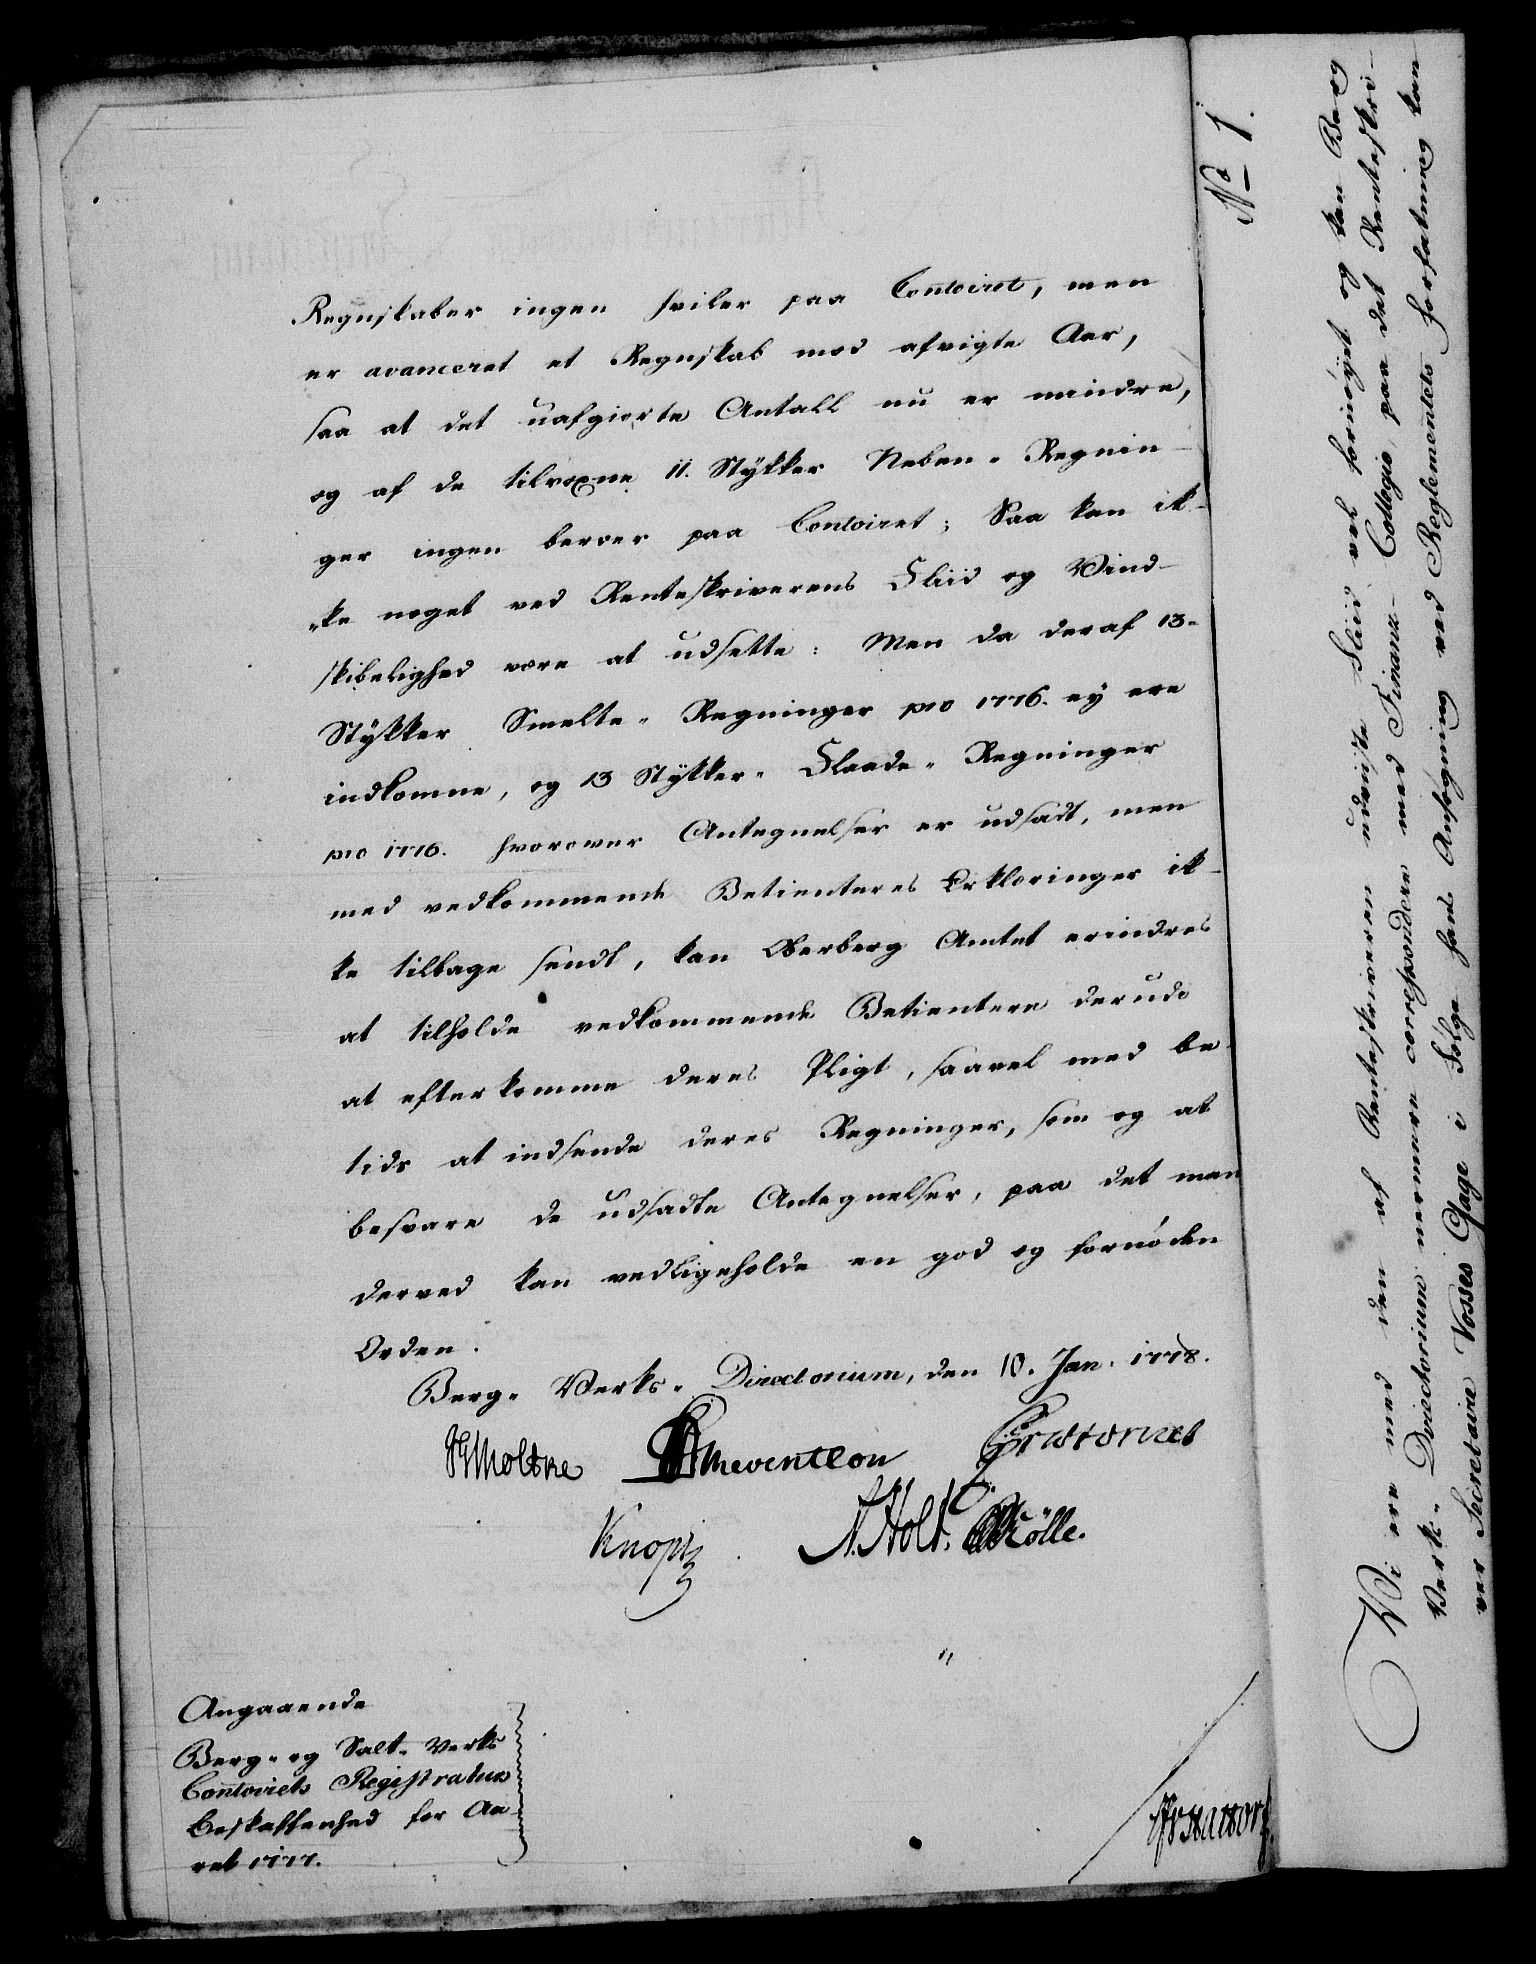 Regnskaber ingen hviler paa Contoiret, men
er avanceret et Regnskab mod afvigte Aar,
saa at det uafgiorte Antall nu er mindre,
og af de tilvoxne 11. Stÿkker Neben-Regnin-
ger ingen beroer paa Contoiret; Saa kan ik-
ke noget ved Renteskriverens Fliid og Vind-
skibelighed være at udsette: Men da deraf 13-
Stÿkker Smelte-Regninger pro 1776. ey ere
indkomne, og 13 Stÿkker-Flaade-Regninger
pro 1776. hvorover Antegnelser er udsadt, men
med vedkommende Betienteres Erklæringer ik-
ke tilbage sendt, kan Oberberg Amtet erindres
at tilholde vedkommende Betientere derude
at efterkomme deres Pligt, saavel med be-
tids at indsende deres Regninger, som og at
besvare de udsadte Antegnelser, paa det man
derved kan vedligeholde en god og fornøden
Orden.
Berg-Verks-Directorium, den 10. Jan. 1778.
Moltke Eratornet
Knopf N. Holt. Rölle.
Angaaende
Berg- og Salt-Verks
Contoirets Registraturs
Beskaffenhed for Aa-
ret 1777.
No 1.
Vi ere med den af Renteskriveren udviiste Fliid vel fornøyet og kan Berg
Verks-Directorium nermere correspondere med Finanz-Collegio paa det Renteskri-
ver Secretaire Vosses Gage i Følge hans Ansøgning ved Reglementets forfatning kan